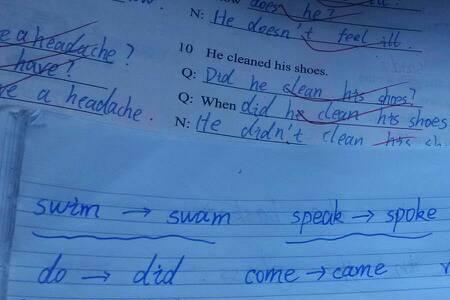 does he?
N: He doesn't feel ill.
e a headache?
10 He cleaned his shoes.
have?
Q: Did he clean his shoes?
e a headache.
Q: When did he clean his shoes
N: He didn't clean his sh
swim → swam speak → spoke
do → did come → came